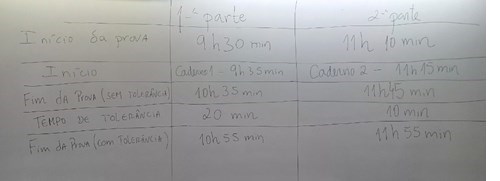 1ª parte 2ª parte
Início da prova 9h30 min 11h 10 min
Início Caderno 1 - 9h35min Caderno 2 - 11h15min
Fim da Prova (sem tolerância) 10h 35 min 11h45 min
Tempo de tolerância 20 min 10 min
Fim da Prova (com tolerância) 10h 55 min 11h 55 min